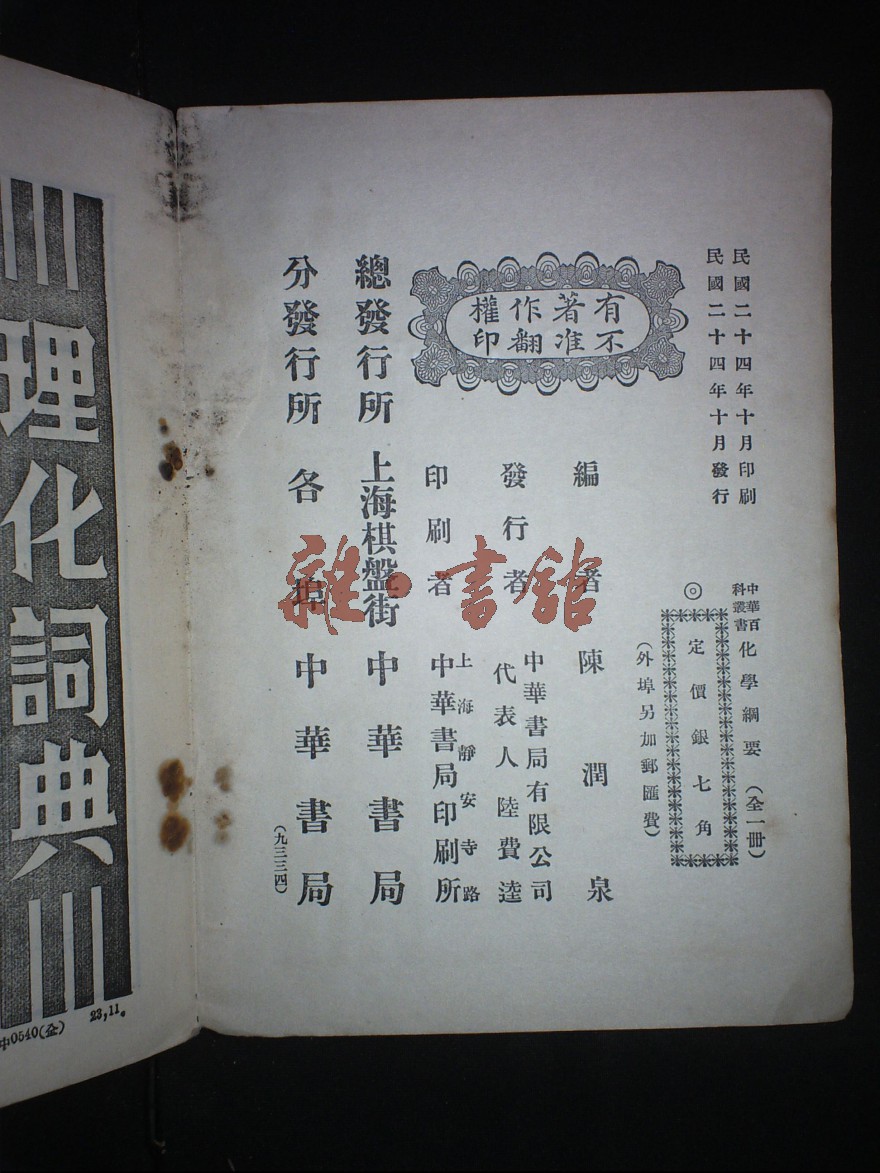 民國二十四年十月印刷
民國二十四年十月發行
中華百科叢書 化學綱要（全一冊）
◎定價銀七角
（外埠另加郵匯費）
有著作權
不准翻印
編者 陳潤泉
發行者 中華書局有限公司
代表人 陸費逵
印刷者 上海靜安寺路
中華書局印刷所
總發行所 上海棋盤街 中華書局
分發行所 各埠 中華書局
（九三三四）
理化詞典
中0540(金) 23,11。
雜·書館